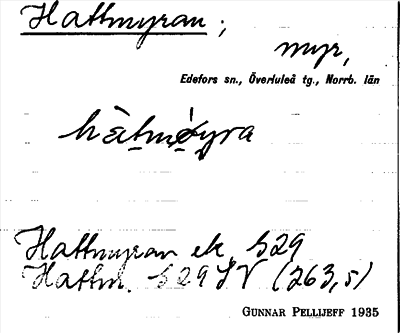 Hattmyran ;
myr,
Edefors sn., Överluleå tg., Norrb. län
Hattmyran ek. S29
Hattm. S29 SV (263,5)
GUNNAR PELLIJEFF 1935